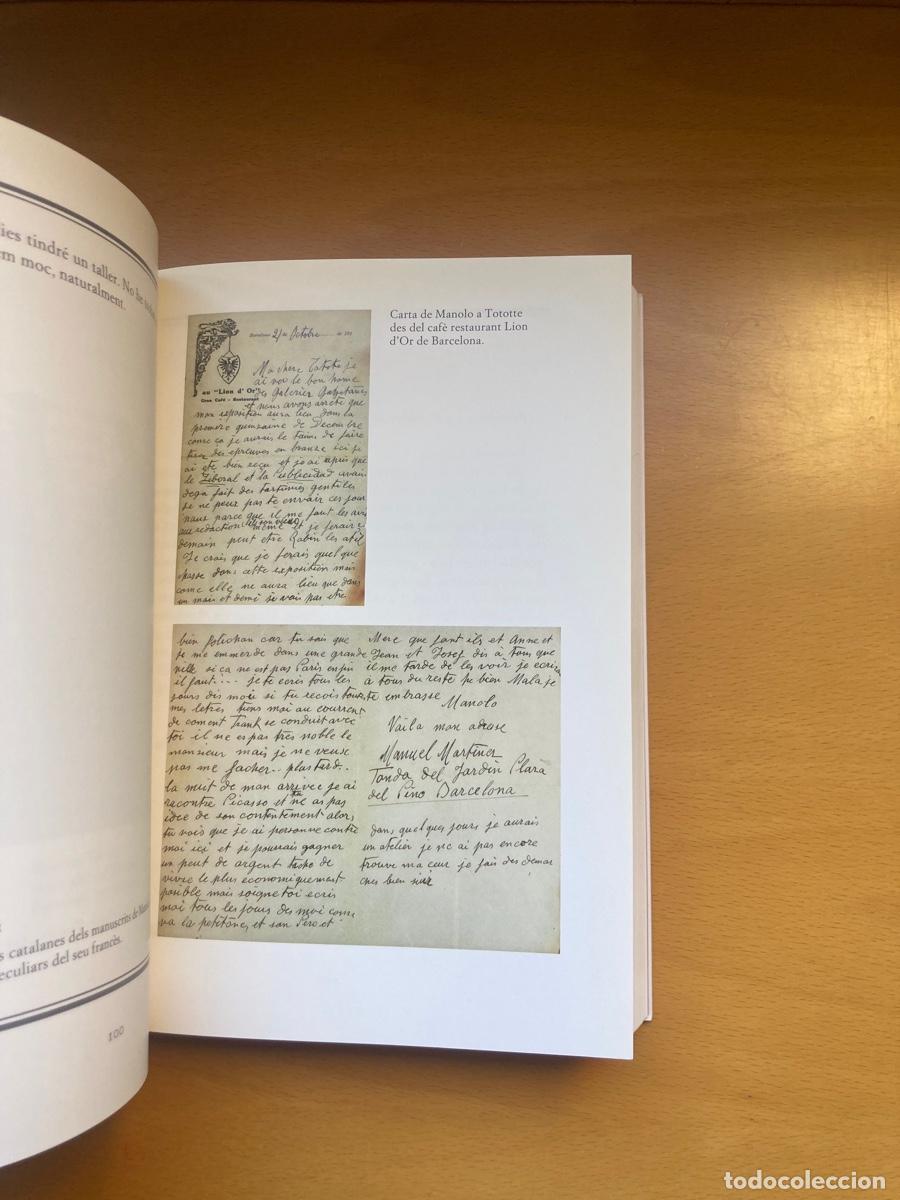 ies tindré un taller. No he
em moc, naturalment.
s catalanes dels manuscrits de
eculiars del seu francès.
100
Carta de Manolo a Tototte
des del cafè restaurant Lion
d'Or de Barcelona.
Barcelona 21 de Octobre de 191
au "Lion d'Or"
Gran Café - Restaurant
Ma chere Totote je
ai vou le bon home
des Galerier
et nous avons arreté que
mon exposition aura lieu dans la
premere quinzaine de Decembre
come ça je aurais le taims de faire
tirer des epreuves en bronze ici je
ai eté bien reçu et je ai apris que
le Liberal et la Publicidad avain
dega fait des gentiles
je ne peux pas te envoir ces jour
naus parce que il me faut les
au redaction meme et je ferais
demain peut etre Rabin les
Je crais que je ferais quel que
chasse dans cette exposition mais
come elle ne aura lieu que dans
un mois et demi je vais pas etre
bien folichan car tu sais que
je me emmerde dans une grande
ville si ça ne est pas Paris enfin
il faut... je te ecris tous les
jours dis moi si tu recois tous
mes letres tiens moi au courrent
de coment Frank se conduit avec
toi il ne es pas très noble le
monsieur mais je ne veuse
pas me facher.. plus tard..
la nuit de mon arrivee je ai
racontré Picasso et tu ne as pas
idee de son contentement alors
tu vois que je ai personne contre
moi ici et je pourrais gagner
un peut de argent tache de
vivre le plus economiquement
posible mais soigne toi ecris
moi tous les jours des moi come
va la petitone, et san Pero et
Mere que font ils et Anne et
Jean et Josef dis à tum que
il me tarde de les voir je ecrirai
à tous du reste pe bien Mala je
te embrasse
Manolo
Voila mon adrese
Manuel Martinez
Fonda del Jardin Plaza
del Pino Barcelona
dans quelques jours je aurais
un atelier je ne ai pas encore
trouve ma ceur je fais des demar
ches bien sûr
todocoleccion